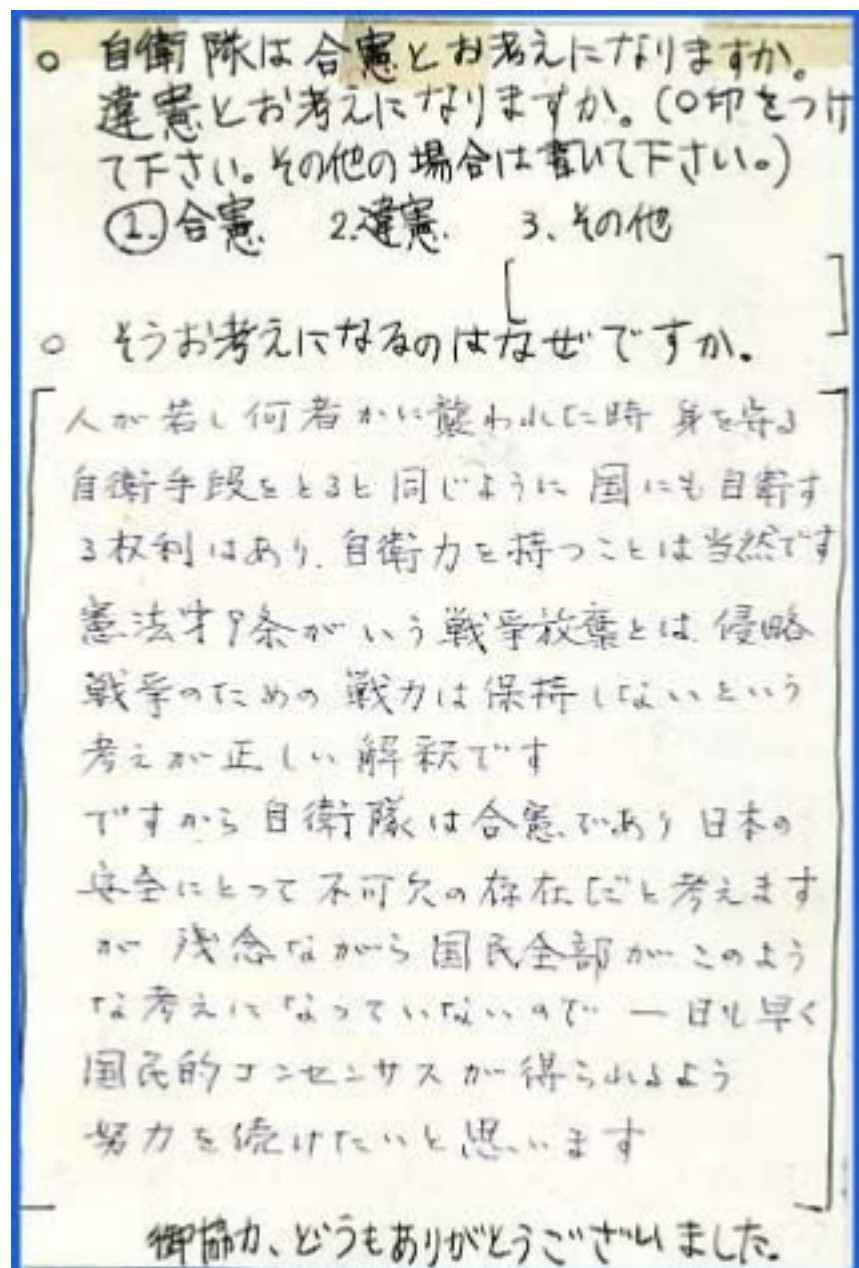 ○ 自衛隊は合憲とお考えになりますか。
違憲とお考えになりますか。(○印をつけ
て下さい。その他の場合は書いて下さい。)
①.合憲. 2.違憲. 3、その他
[ ]
○ そうお考えになるのはなぜですか。
人が若し何者かに襲われた時 身を守る
自衛手段をとると同じように 国にも自衛す
る权利はあり、自衛力を持つことは当然です
憲法才9条がいう戦争放棄とは、侵略
戦争のための 戦力は保持しないという
考えが正しい解釈です
ですから自衛隊は合憲であり 日本の
安全にとって不可欠の存在だと考えます
が 残念ながら国民全部がこのよう
な考えになっていないので 一日も早く
国民的コンセンサスが得られるよう
努力を続けたいと思います
御協力、どうもありがとうございました。